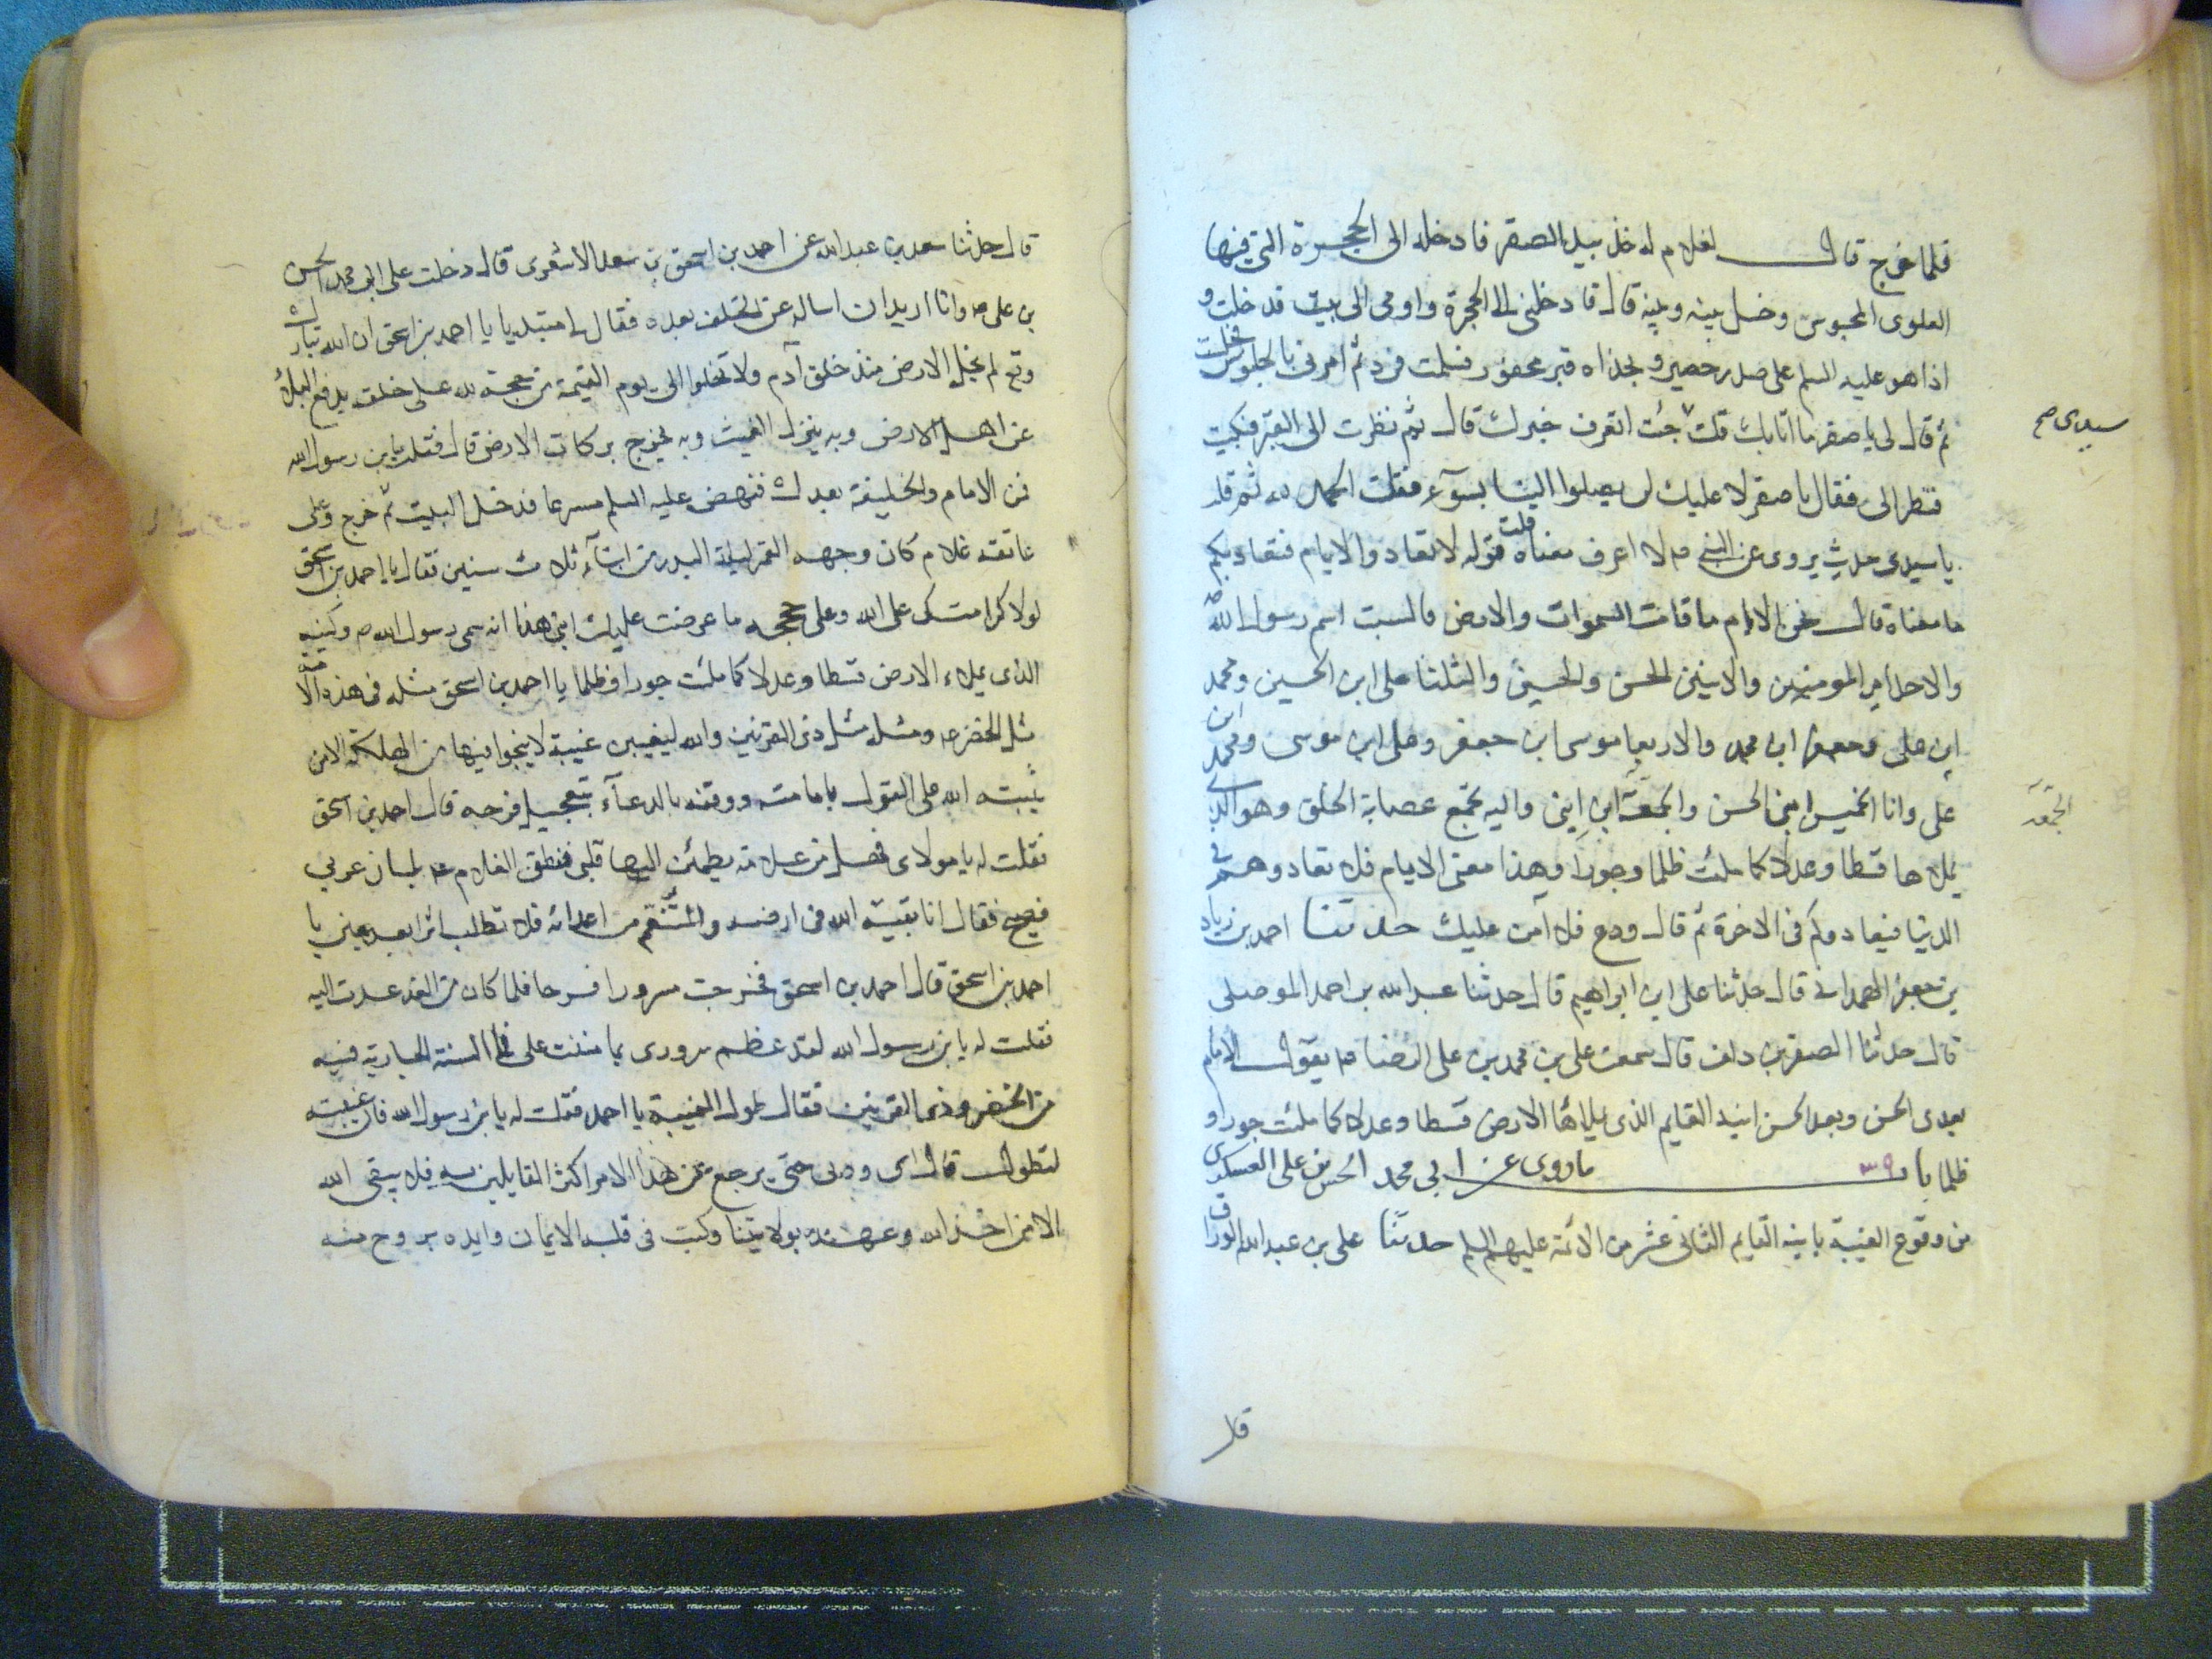 فلما خرج قال لغلام له خذ بيد الصقر فادخله الى الحجرة التي فيها
العلوى المحبوس وخل بينه وبينه قال فادخلنى الى الحجرة واومى الى بيت فدخلت و
اذا هو عليه السلم على صدر حصير وبحذاه قبر محفور فسلمت فرد ثم امرنى بالجلوس فجلست
ثم قال لى يا صقر ما اتا بك قلت جئت اتعرف خبرك قال ثم نظرت الى القبر فبكيت
سيدى صح
فنظر الى فقال يا صقر لا عليك لن يصلوا الينا بسوء فقلت الحمد لله ثم قلت
يا سيدى حديث يروى عن النبى ص لا اعرف معناه قلت قوله لا تعادوا الايام فتعاديكم
ما معناه قال نحن الايام ما قامت السموات والارض فالسبت اسم رسول الله
والاحد امير المومنين والاثنين الحسن والحسين والثلثا على ابن الحسين ومحمد
ابن على وجعفر ابن محمد والاربعا موسى ابن جعفر وعلى ابن موسى ومحمد ابن
على وانا الخميس ابنى الحسن والجمعة ابن ابنى واليه تجمع عصابة الحلق وهو الذى
الجمعة
يملاها قسطا وعدلا كما ملئت ظلما وجورا وهذا معنى الايام فلا تعادوهم فى
الدنيا فيعادوكم فى الاخرة ثم قال ودع فلا آمن عليك حدثنا احمد بن زياد
بن جعفر الهمدانى قال حدثنا على ابن ابراهيم قال حدثنا عبد الله بن احمد الموصلى
قال حدثنا الصقر بن دلف قال سمعت على بن محمد بن على الرضا ع يقول الامام
بعدى الحسن وبعد الحسن ابنه القايم الذى يملاها الارض قسطا وعدلا كما ملئت جورا و
ظلما باب ٣٩ ما روى عن ابى محمد الحسن بن على العسكرى
من وقوع الغيبة بابنه القايم الثانى عشر من الائمة عليهم السلم حدثنا على بن عبد الله الوراق
قال
قال حدثنا سعد بن عبد الله عن احمد بن اسحق بن سعد الاشعرى قال دخلت على ابى محمد الحسن
بن على ع وانا اريد ان اساله عن الخلف بعده فقال لى مبتديا يا احمد بن اسحق ان الله تبارك
وتع لم يخل الارض منذ خلق آدم ولا تخلوا الى يوم القيمة من حجة لله على خلقه يدفع البلاء
عن اهل الارض وبه ينزل الغيث وبه يخرج بركات الارض قال فقلت يابن رسول الله
فمن الامام والخليفة بعدك فنهض عليه السلم مسرعا فدخل البيت ثم خرج وعلى
عاتقه غلام كان وجهه القمر ليلة البدر من ابناء ثلاث سنين فقال يا احمد بن اسحق
لولا كرامتك على الله وعلى حججه ما عرضت عليك ابنى هذا انه سمى رسول الله ص وكنيه
الذى يملاء الارض قسطا وعدلا كما ملئت جورا وظلما يا احمد بن اسحق مثله فى هذه الامة
مثل الخضر ع ومثله مثل ذى القرنين والله ليغيبن غيبة لا ينجوا فيها من الهلكة الا من
يثبته الله على القول بامامته ووفقه بالدعاء بتعجيل فرجه قال احمد بن اسحق
فقلت له يا مولاى فهل من علامة يطمئن اليها قلبى فنطق الغلام ع بلسان عربى
فصيح فقال انا بقية الله فى ارضه والمنتقم من اعدائه فلا تطلب اثرا بعد عين يا
احمد بن اسحق قال احمد بن اسحق فخرجت مسرورا فرحا فلما كان من الغد عدت اليه
فقلت له يا بن رسول الله لقد عظم سرورى بما مننت على فما السنة الجارية فيه
من الخضر وذى القرنين فقال طول الغيبة يا احمد فقلت له يا بن رسول الله فان غيبته
لتطول قال اى وربى حتى يرجع عن هذا الامر اكثر القايلين به فلا يبقى الله
الا من اخذ الله وعهده بولايتنا وكتب فى قلبه الايمان وايده بروح منه